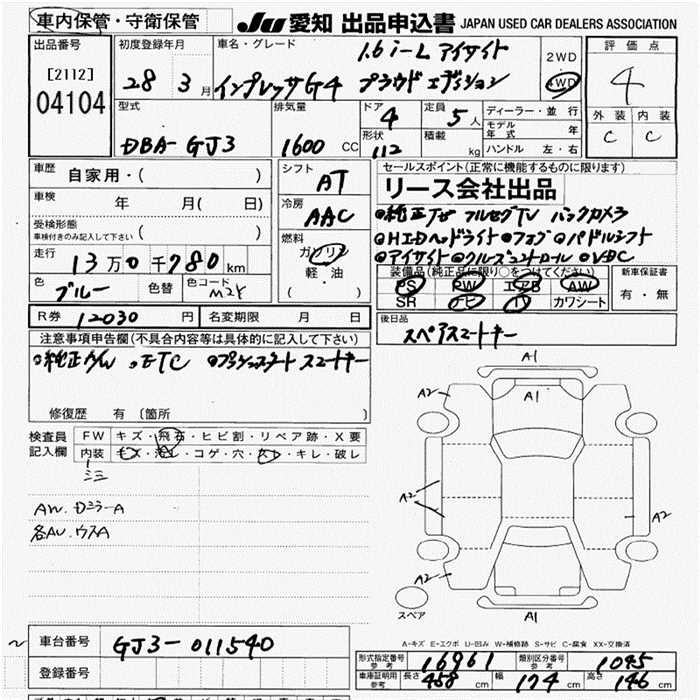 車内保管・守衛保管 JU 愛知 出品申込書 JAPAN USED CAR DEALERS ASSOCIATION
出品番号 [2112] 04104
初度登録年月 28 3月
車名・グレード 1.6 i-L アイサイト
インプレッサG4 プラウドエディション
2WD 4WD
評価点 4
外装 内装
C C
型式 DBA-GJ3
排気量 1600 CC
ドア 4 定員 5人
形状 積載 kg
112
ディーラー・並行
モデル年式 年
ハンドル 左・右
車歴 自家用・( )
車検 年 月( 日)
受検形態 車検付きのみ記入して下さい ( )
走行 13万0千780km
色 ブルー 色替 色コード M2Y
シフト AT
冷房 AAC
燃料 ガソリン 軽・油 ( )
セールスポイント(正常に機能するものに限ります)
リース会社出品
●純正ナビ フルセグTV バックカメラ
●HIDヘッドライト ●フォグ ●パドルシフト
●アイサイト ●クルーズコントロール ●VDC
装備品(純正品に限り○をつけてください) 新車保証書
PS PW エアB AW 有・無
SR ナビ TV カワシート
R券 12030円 名変期限 月 日
後日品
スペアスマートキー
注意事項申告欄(不具合内容等は具体的に記入して下さい)
●純正A/W ●ETC ●プッシュスタート スマートキー
修復歴 有〔箇所 〕
検査員記入欄 FW キズ・飛石・ヒビ割・リペア跡・X要
内装 キズ・汚レ・コゲ・穴・スレ・キレ・破レ
AW.
各AW.ウスA
A1
A2 A1
A2
A2
A2
A1
スペア
A-キズ E-エクボ U-凹み W-補修跡 S-サビ C-腐食 XX-交換済
車台番号 GJ3-011540
登録番号
形式指定番号 参考 16961 類別区分番号 参考 1045
車庫証明用 参考 長さ 458 cm 幅 174 cm 高さ 146 cm